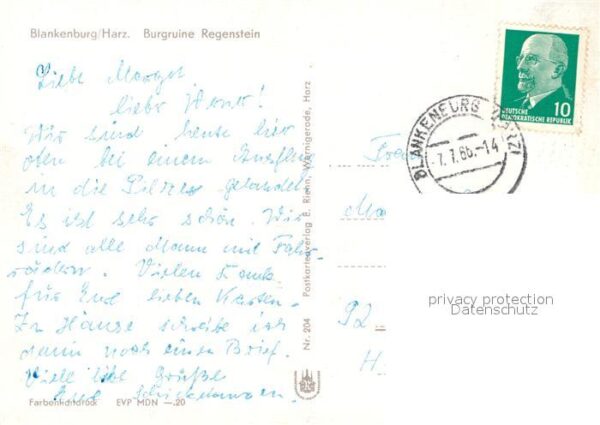 Blankenburg/Harz. Burgruine Regenstein
Liebe Margot
liebe
Wir sind heute hier
oben bei einem Ausflug
in die Pilze gelandet
Es ist sehr schön. Wir
sind alle Mann mit Fahr-
rädern. Vielen Dank
für Eure lieben Karten.
In Hause schreibe ich
dann noch einen Brief.
Viele lbe Grüße
Eure
Farbenkartdruck EVP MDN —.20
Nr. 204 Postkartenverlag E. Riehn, Wernigerode, Harz
DEUTSCHE
DEMOKRATISCHE REPUBLIK
10
BLANKENBURG (HARZ)
-7.7.66.-14
92
H
privacy protection
Datenschutz